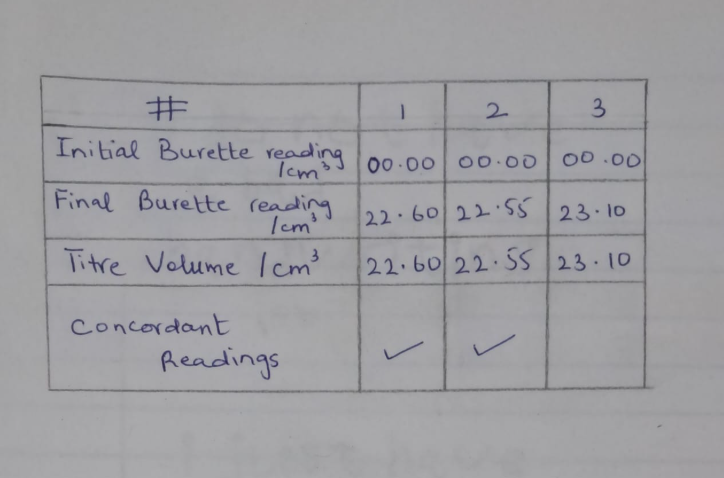 # 1 2 3
Initial Burette reading /cm³ 00.00 00.00 00.00
Final Burette reading /cm³ 22.60 22.55 23.10
Titre Volume /cm³ 22.60 22.55 23.10
Concordant Readings ✓ ✓